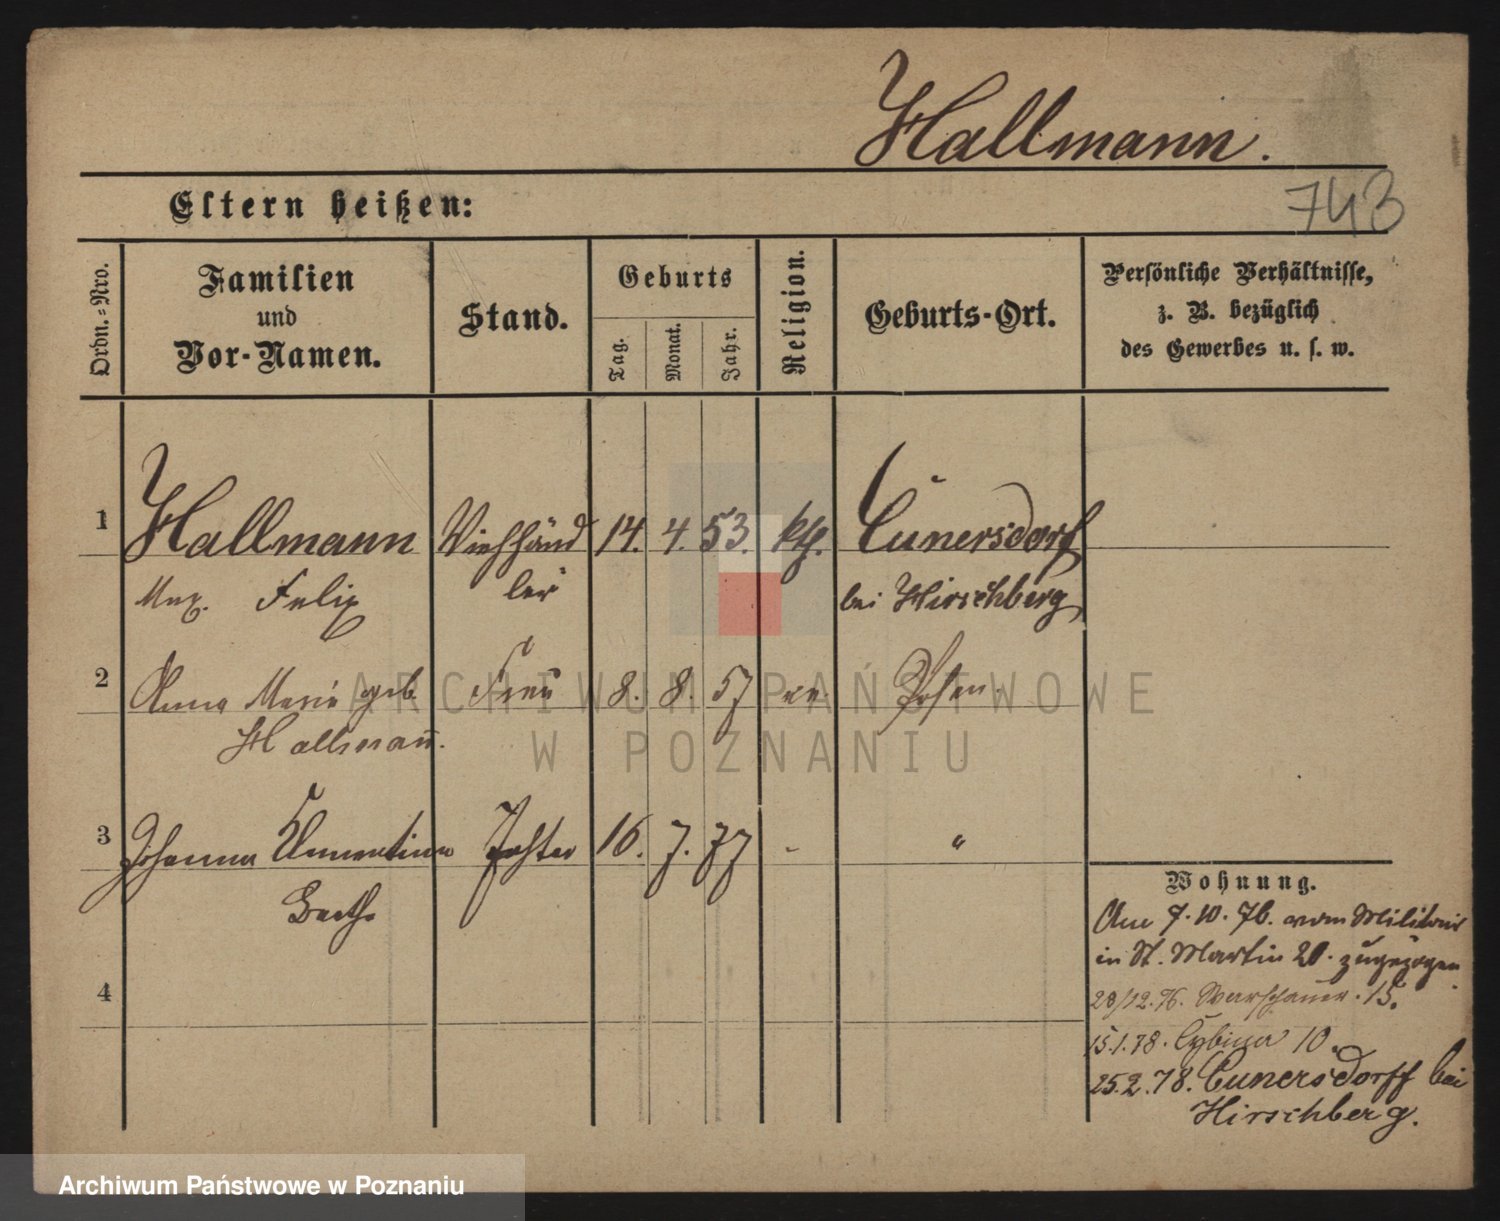 Hallmann.
743
Eltern heißen:
Ordn.-Nro.
Familien
und
Vor-Namen.
Stand.
Geburts
Tag.
Monat.
Jahr.
Religion.
Geburts-Ort.
Persönliche Verhältnisse,
z. B. bezüglich
des Gewerbes u. s. w.
1 Hallmann Viehhänd 14. 4. 53. kth. Cunersdorf
Max. Felix ler bei Hirschberg
2 Anna Marie geb. Frau 8. 8. 57 ev. Posen.
Hallmann.
3 Johanna Clementine Tochter 16. 7. 77 - "
4
Wohnung.
Am 7. 10. 76. vom Militair
in St. Martin 20. zugezogen.
28/12. 76. Warschauer. 15.
15.1.78. Cybina 10.
25.2.78. Cunersdorff bei
Hirschberg.
ARCHIWUM PAŃSTWOWE
W POZNANIU
Archiwum Państwowe w Poznaniu